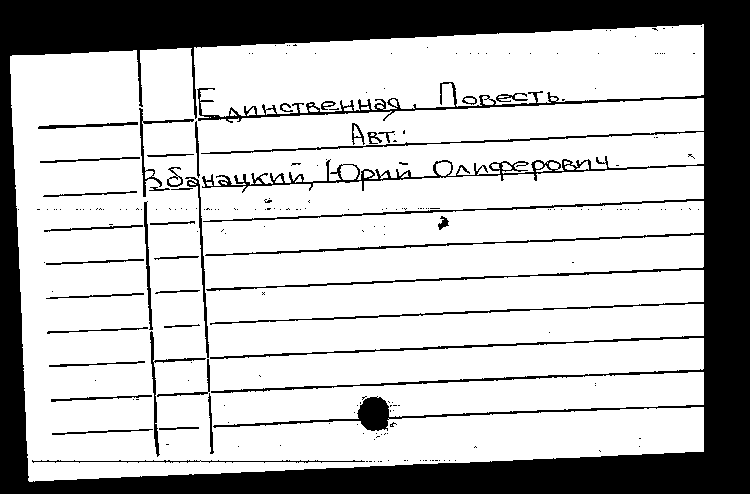 Единственная. Повесть.
Авт.:
Збанацкий, Юрий Олиферович.